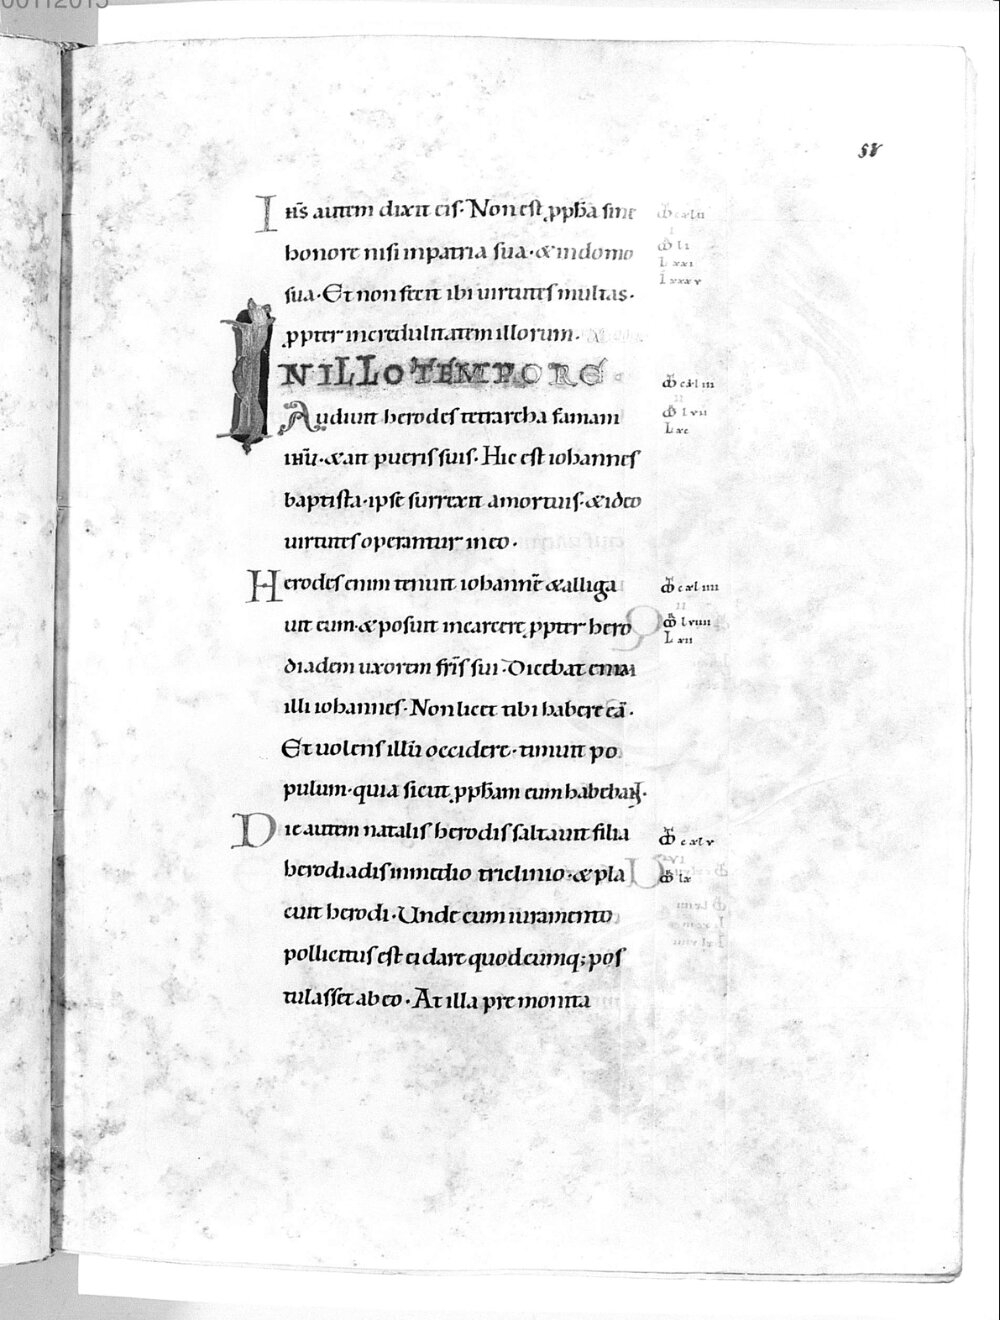 00112015
58
Ihs̄ autem dixit eis· Non est ꝓph̄a sine
honore nisi inpatria sua·&indomo
sua· Et non fecit ibi uirtutes multas·
ꝓpter incredulitatem illorum·
INILLO TEMPORE
Audiuit herodes tetrarcha famam
ihū·&ait pueris suis· Hic est iohannes
baptista·ipse surrexit amortuis·&ideo
uirtutes operantur ineo·
Herodes enim tenuit iohannē &alliga
uit eum·&posuit incarcere ꝓpter hero
diadem uxorem fr̄is sui· Dicebat enim
illi iohannes· Non licet tibi habere eā·
Et uolens illū occidere· timuit po
pulum·quia sicut ꝓph̄am eum habebant·
Die autem natalis herodis saltauit filia
herodiadis inmedio triclinio·&pla
cuit herodi· Unde cum iuramento
pollicitus est ei dare quodcumq; pos
tulasset ab eo· At illa premonita
cxlii
li
lxxi
lxxxv
cxliii
lvii
Lxc
cxliiii
lviiii
Lxii
cxlv
lx